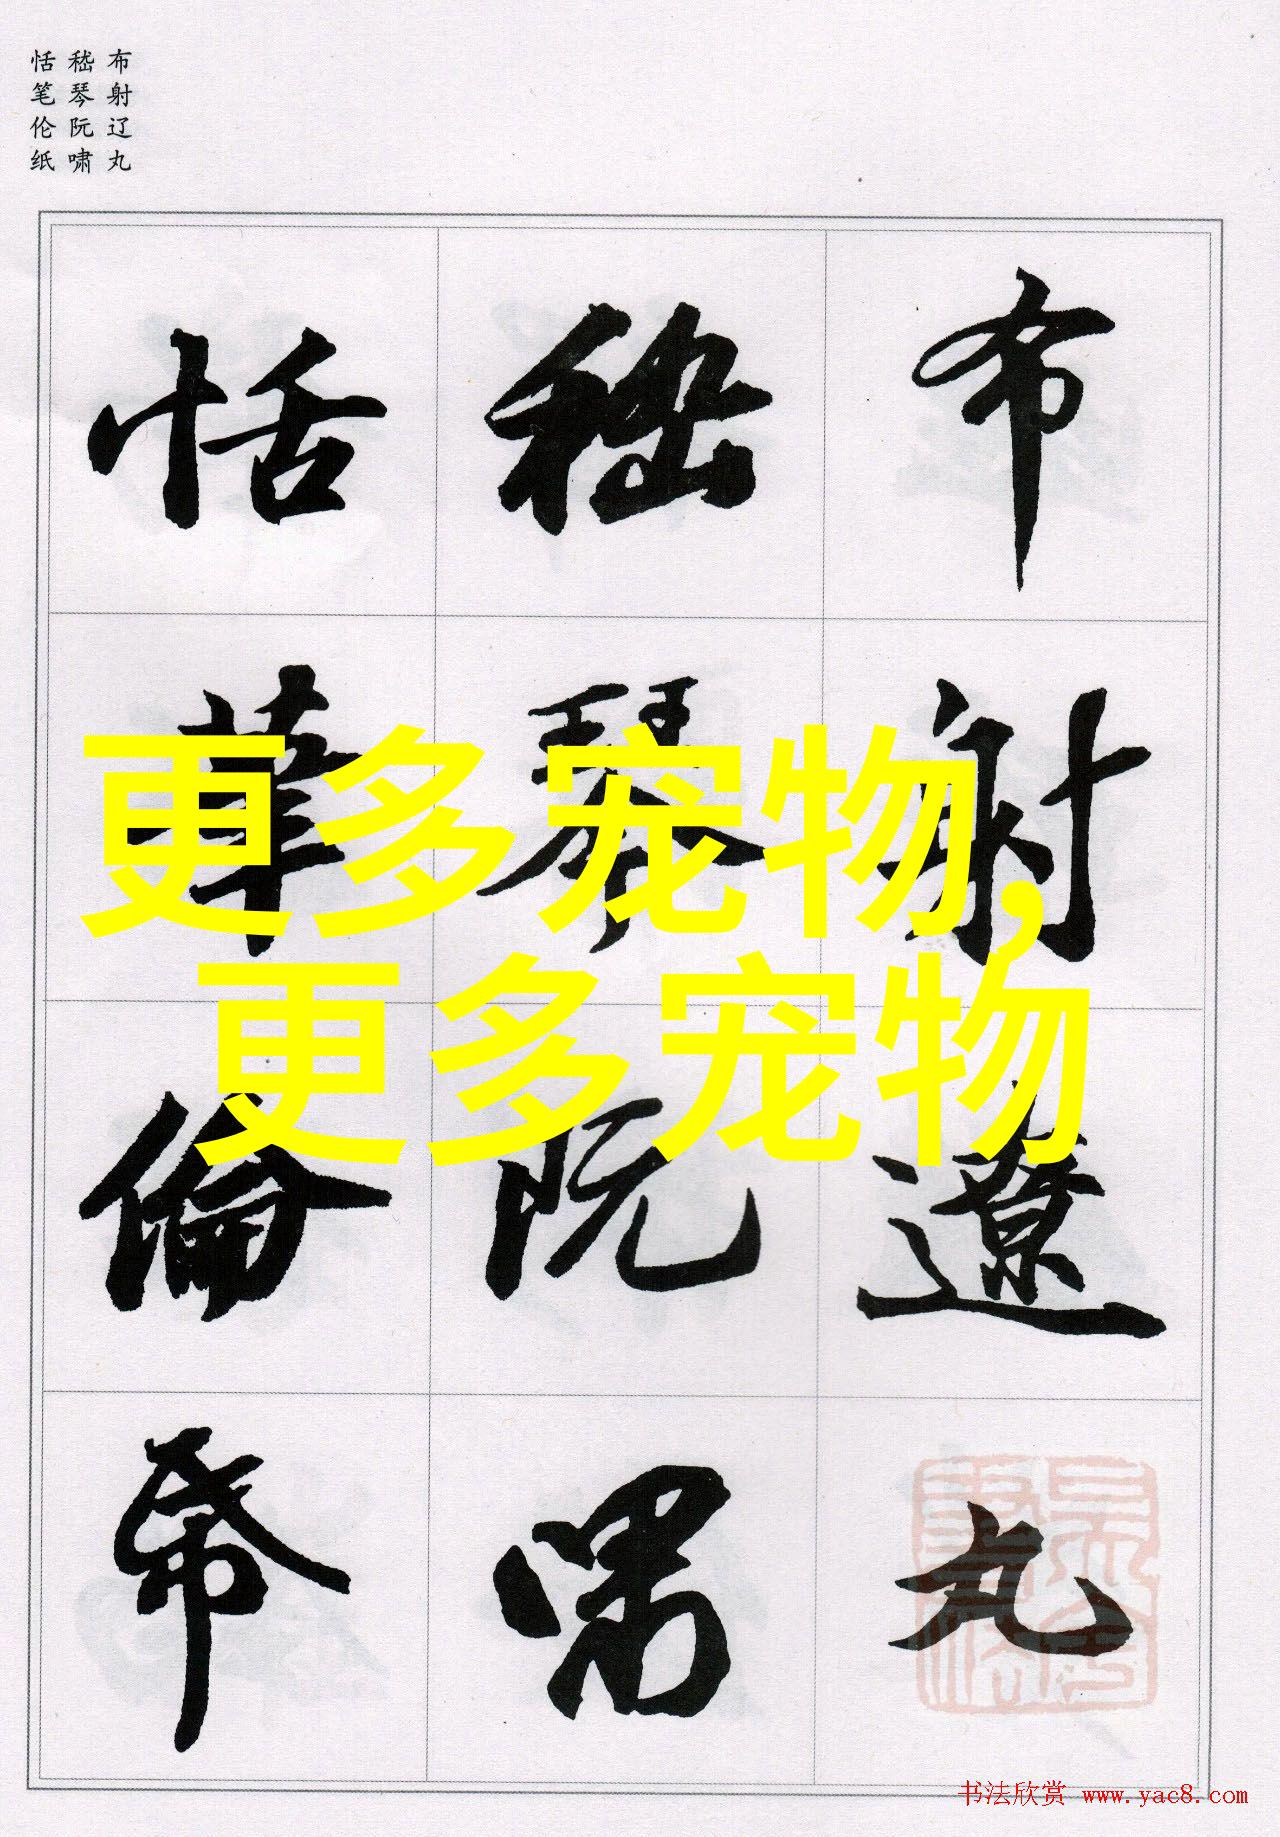 布射辽丸
嵇琴阮啸
恬笔伦纸
布射遼丸
嵇琴阮嘯
恬筆倫帋
更多宠物,
更多宠物
书法欣赏 www.yac8.com